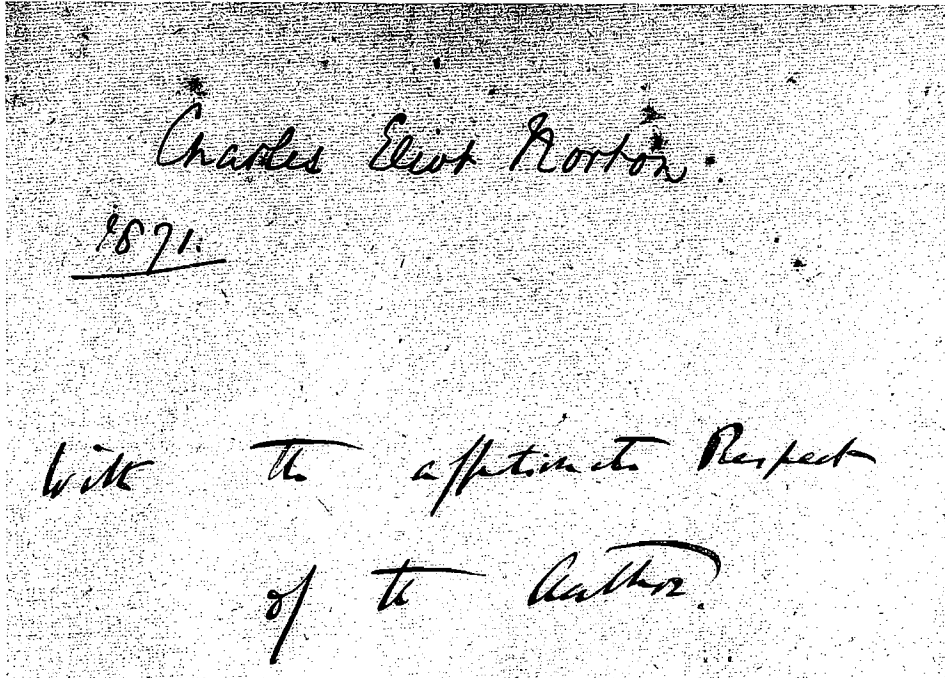 Charles Eliot Norton.
1871.
With the affectionate Respect
of the Author.